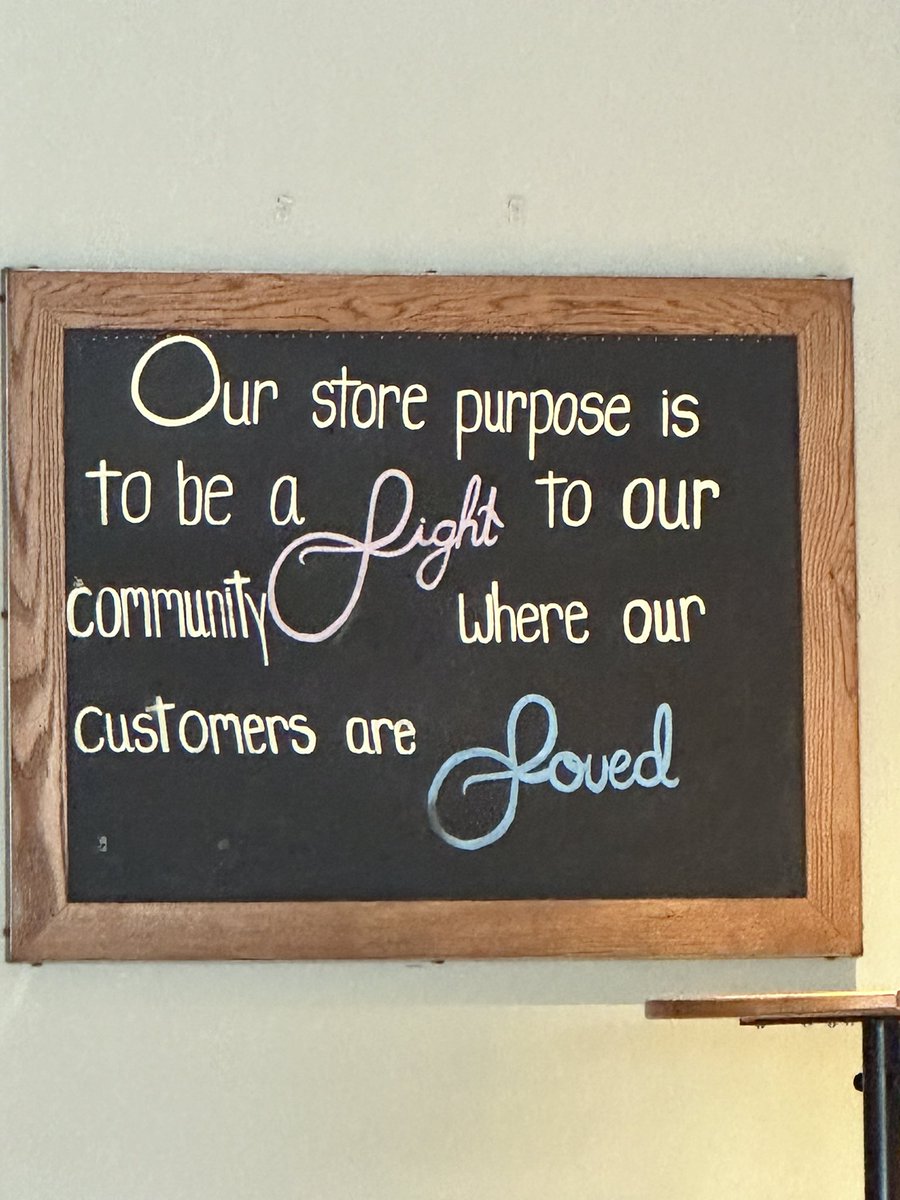 Our store purpose is
to be a Light to our
community Where our
customers are Loved